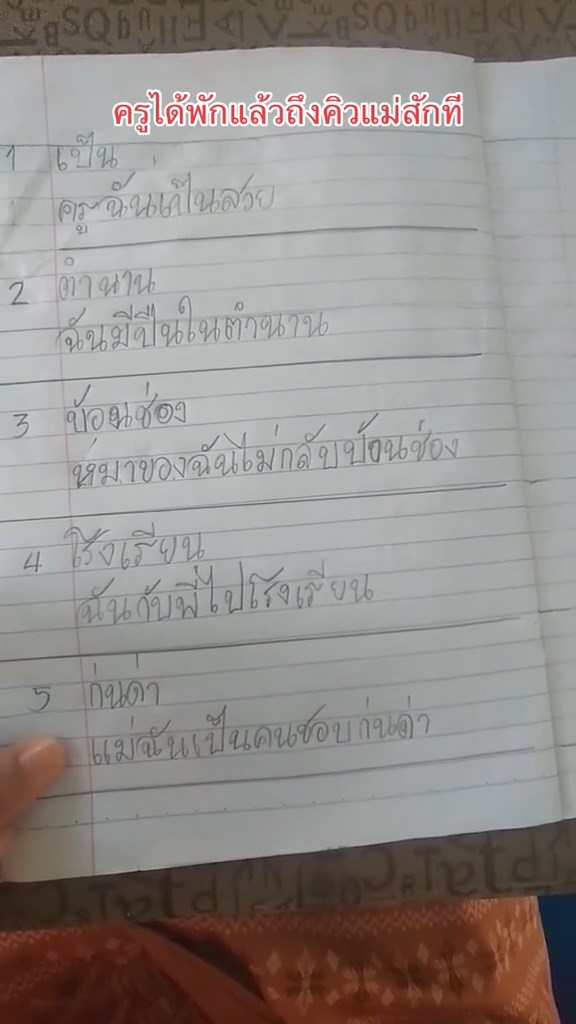 ครูได้พักแล้วถึงคิวแม่สักที
1 เป็น
ครูฉันเป็นสวย
2 ตำนาน
ฉันมีปืนในตำนาน
3 บ้อนช่อง
หมาของฉันไม่กลับบ้อนช่อง
4 โรงเรียน
ฉันกับพี่ไปโรงเรียน
5 ก่นด่า
แม่ฉันเป็นคนชอบก่นด่า